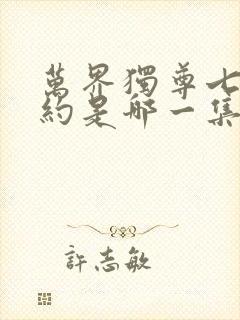 萬界獨尊七
約是哪一集
許志敏